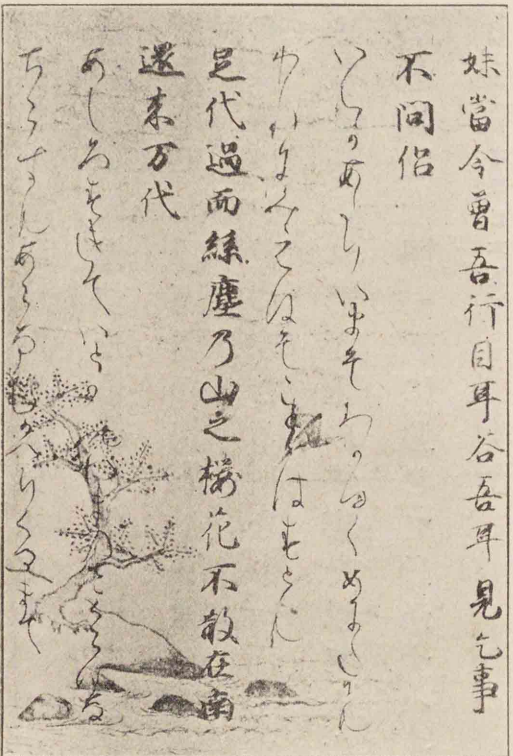 妹當今曽吾行目耳谷吾耳見乞事
不問侶
いもかあたりいまそわかゆくめにたにも
われにみえこそことゝはすとも
足代過而絲塵乃山之櫻花不散在南
還来万代
あしろすきていとかのやまのさくらはな
ちらすもあらなむかへりくるまて